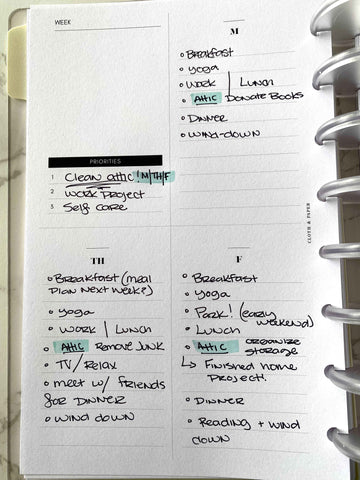 WEEK
PRIORITIES
1 Clean attic! M/TH/F
2 Work Project
3 Self Care
M
Breakfast
Yoga
Work | Lunch
Attic Donate Books
Dinner
Wind-down
TH
Breakfast (meal
Plan Next Week?)
Yoga
Work | Lunch
Attic Remove Junk
TV/Relax
Meet w/ Friends
for Dinner
Wind down
F
Breakfast
Yoga
Park! (easy
weekend)
Lunch
Attic organize
storage
↳ Finished home
Project!
Dinner
Reading + wind
down
CLOTH & PAPER